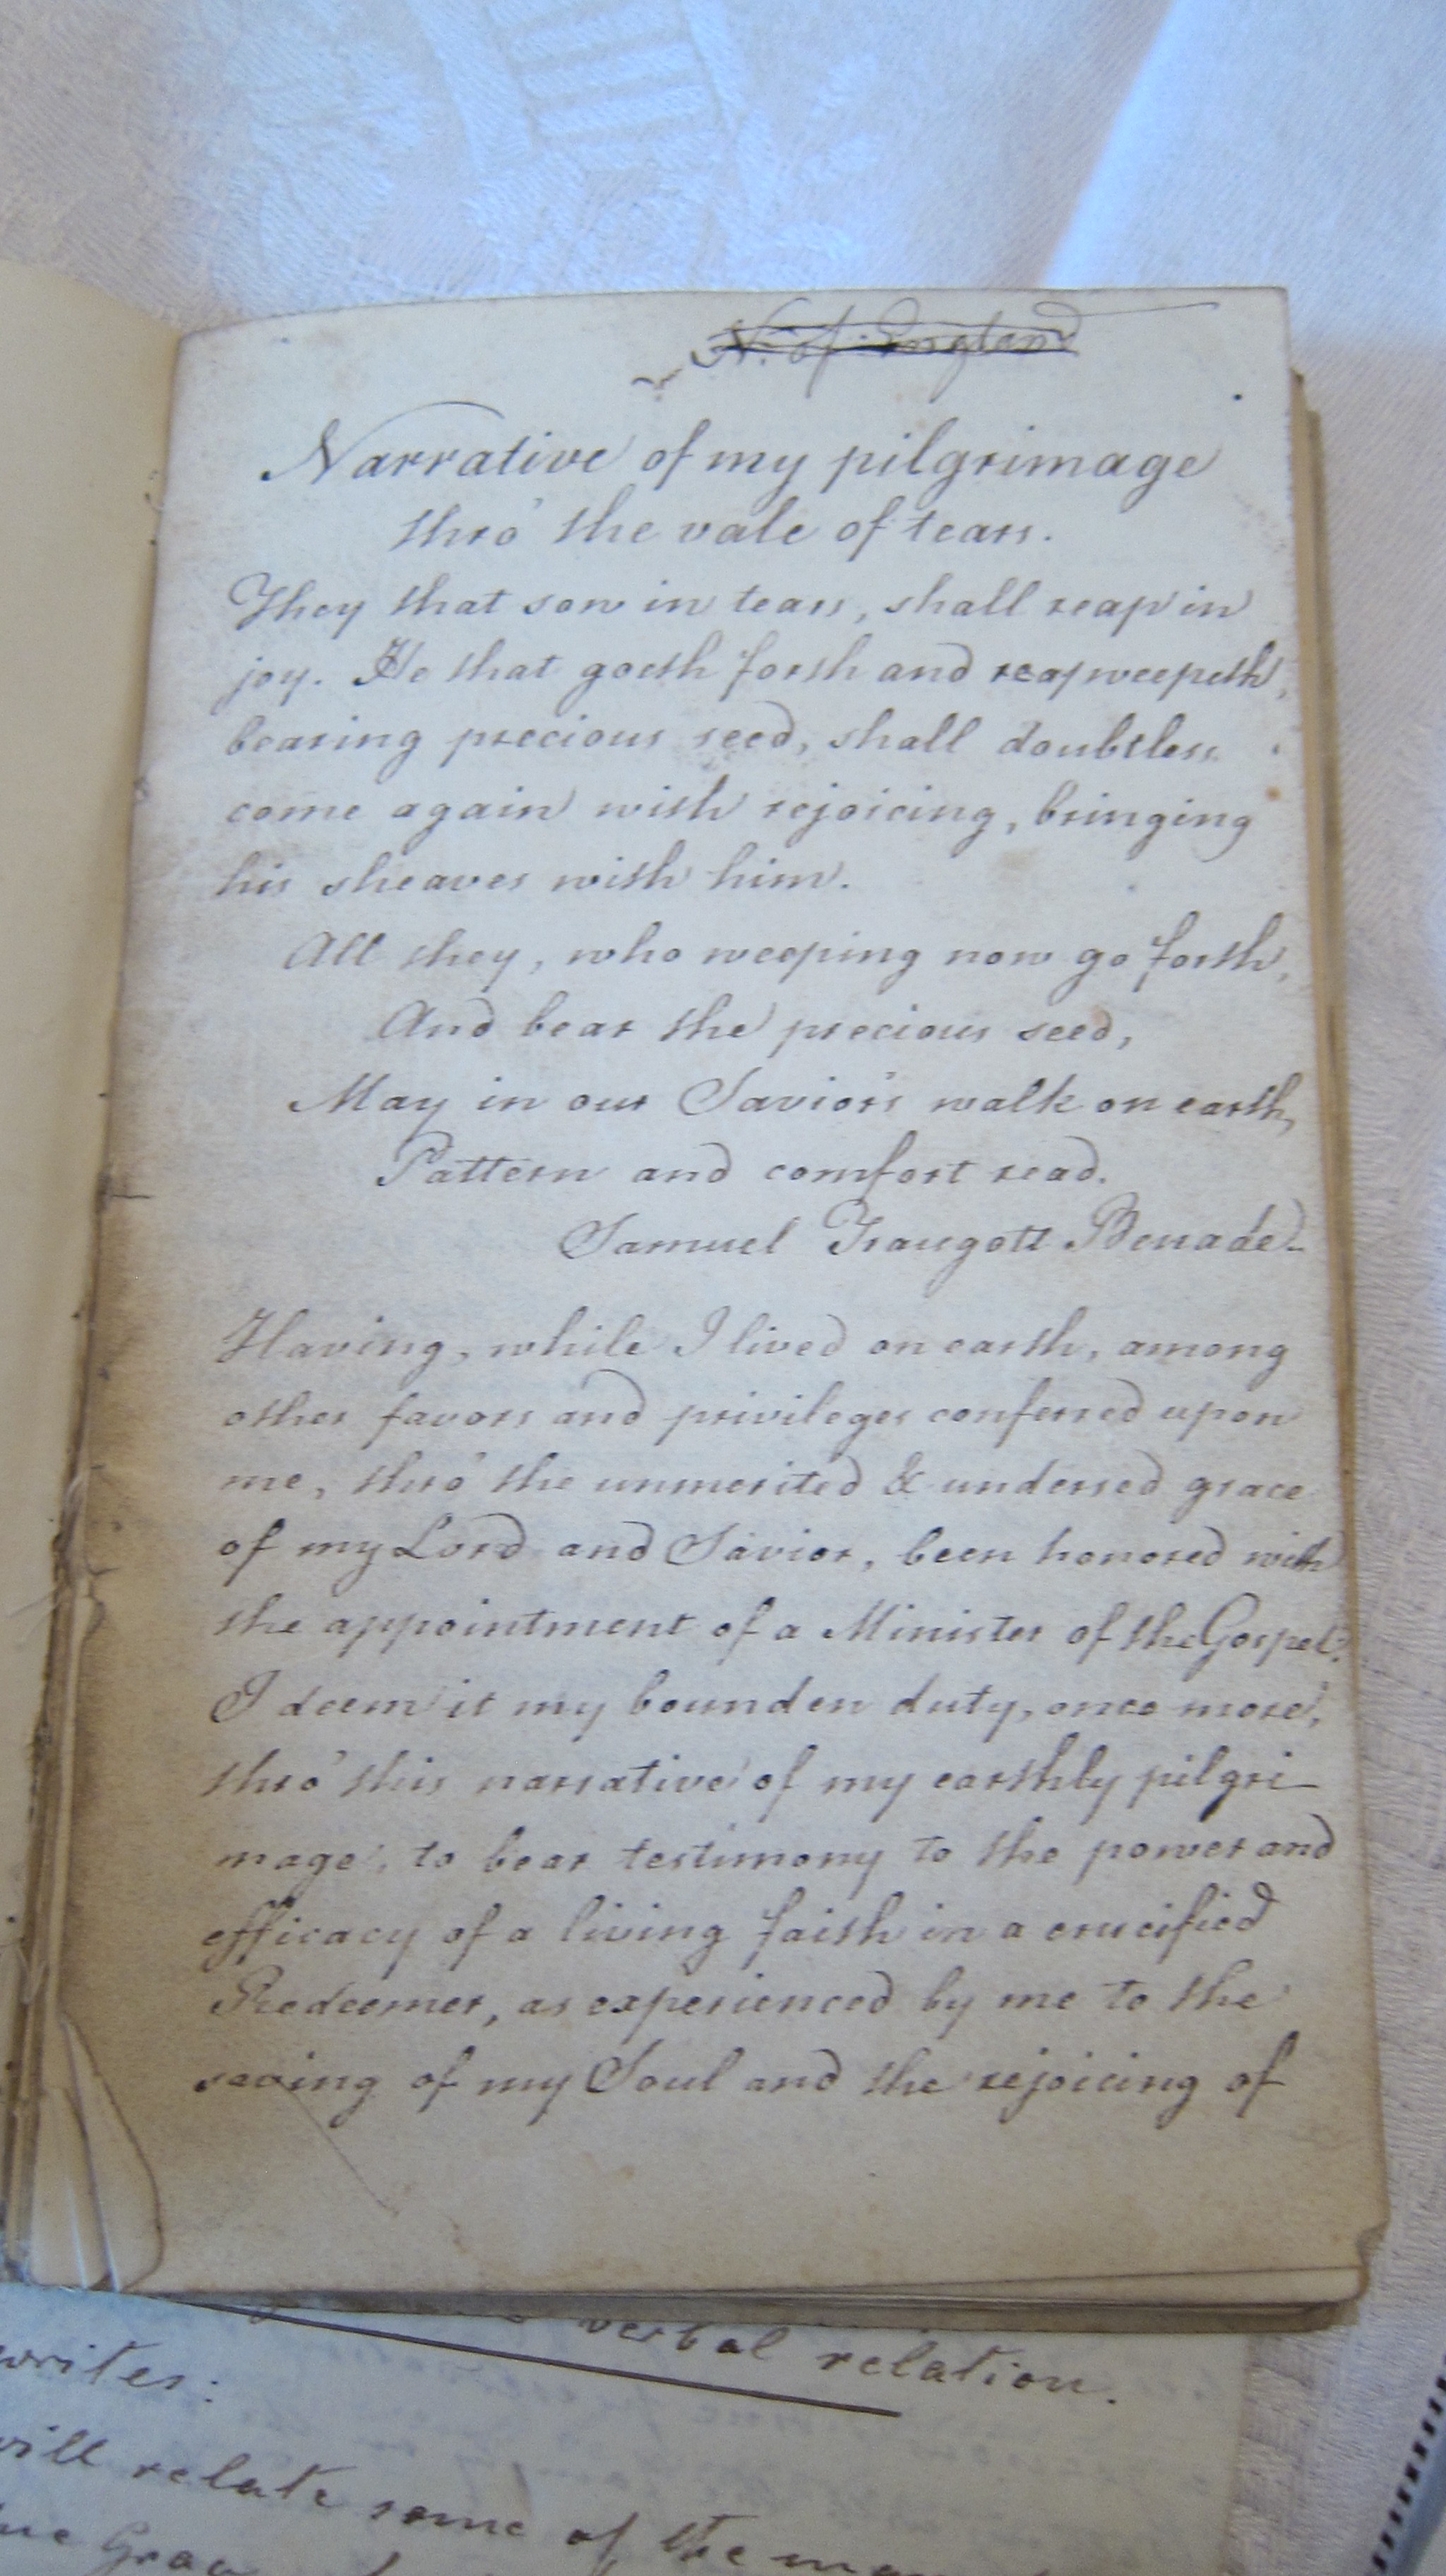 N. of England
Narrative of my pilgrimage
thro' the vale of tears.
They that sow in tears, shall reap in
joy. He that goeth forth and reap weepeth,
bearing precious seed, shall doubtless
come again with rejoicing, bringing
his sheaves with him.
All they, who weeping now go forth,
And bear the precious seed,
May in our Savior's walk on earth,
Pattern and comfort read.
Samuel Traugott Benade.
Having, while I lived on earth, among
other favors and privileges conferred upon
me, thro' the unmerited & undersed grace
of my Lord and Savior, been honored with
the appointment of a Minister of the Gospel:
I deem it my bounden duty, once more,
thro' this narrative of my earthly pilgri-
mage, to bear testimony to the power and
efficacy of a living faith in a crucified
Redeemer, as experienced by me to the
saving of my Soul and the rejoicing of
verbal relation.
writes:
will relate some of the